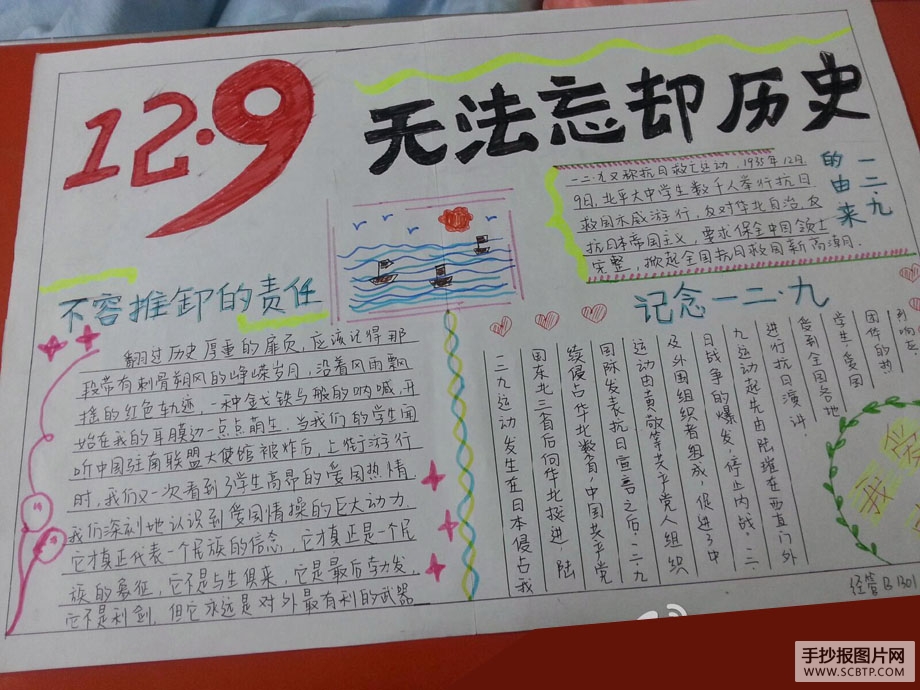 12·9
无法忘却历史
一二·九
的由来
一二·九又称抗日救亡运动，1935年12月
9日，北平大中学生数千人举行抗日
救国示威游行，反对华北自治，反
抗日本帝国主义，要求保全中国领土
完整，掀起全国抗日救国新高潮.
不容推卸的责任
翻过历史厚重的扉页，应该记得那
段带有刺骨朔风的峥嵘岁月，沿着风雨飘
摇的红色轨迹，一种金戈铁马般的呐喊，开
始在我的耳膜边一点点萌生。当我们的学生闻
听中国驻南联盟大使馆被炸后，上街游行
时，我们又一次看到了学生高昂的爱国热情
我们深刻地认识到爱国情操的巨大动力.
它才真正代表一个民族的信念，它才真正是一个民
族的象征，它不是与生俱来，它是最后勃发，
它不是利剑，但它永远是对外最有利的武器
记念一二·九
一二九运动发生在日本侵占我
国东北三省后向华北挺进，陆
续侵占华北数省，中国共产党
国际发表抗日宣言之后，一二九
运动由黄敬等共产党人组织
及外国组织者组成，促进了中
日战争的爆发，停止内战。一二
九运动起先由陆璀在西直门外
进行抗日演讲
受到全国各地
学生，爱国
团体的热
我爱
经管B1301
手抄报图片网
WWW.SCBTP.COM